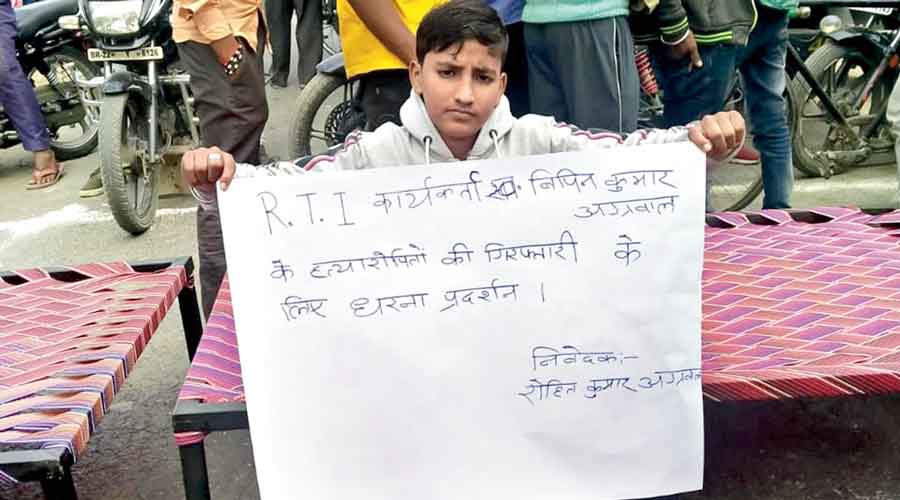 R.T.I कार्यकर्ता स्व. विपिन कुमार
अग्रवाल
के हत्यारोपितों की गिरफ्तारी के
लिए धरना प्रदर्शन ।
निवेदक:-
रोहित कुमार अग्रवाल